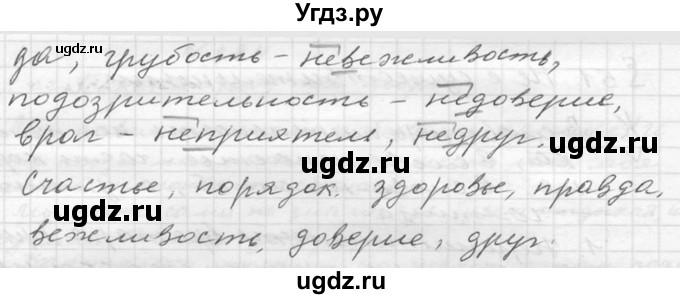 Угдз.ру
да, грубость – невежливость,
подозрительность – недоверие,
враг – неприятель, недруг.
Счастье, порядок. здоровье, правда,
вежливость, доверие, друг.
ugdz.ru ugdz.ru ugdz.ru
ugdz.ru
ugdz.ru ugdz.ru
ugdz.ru